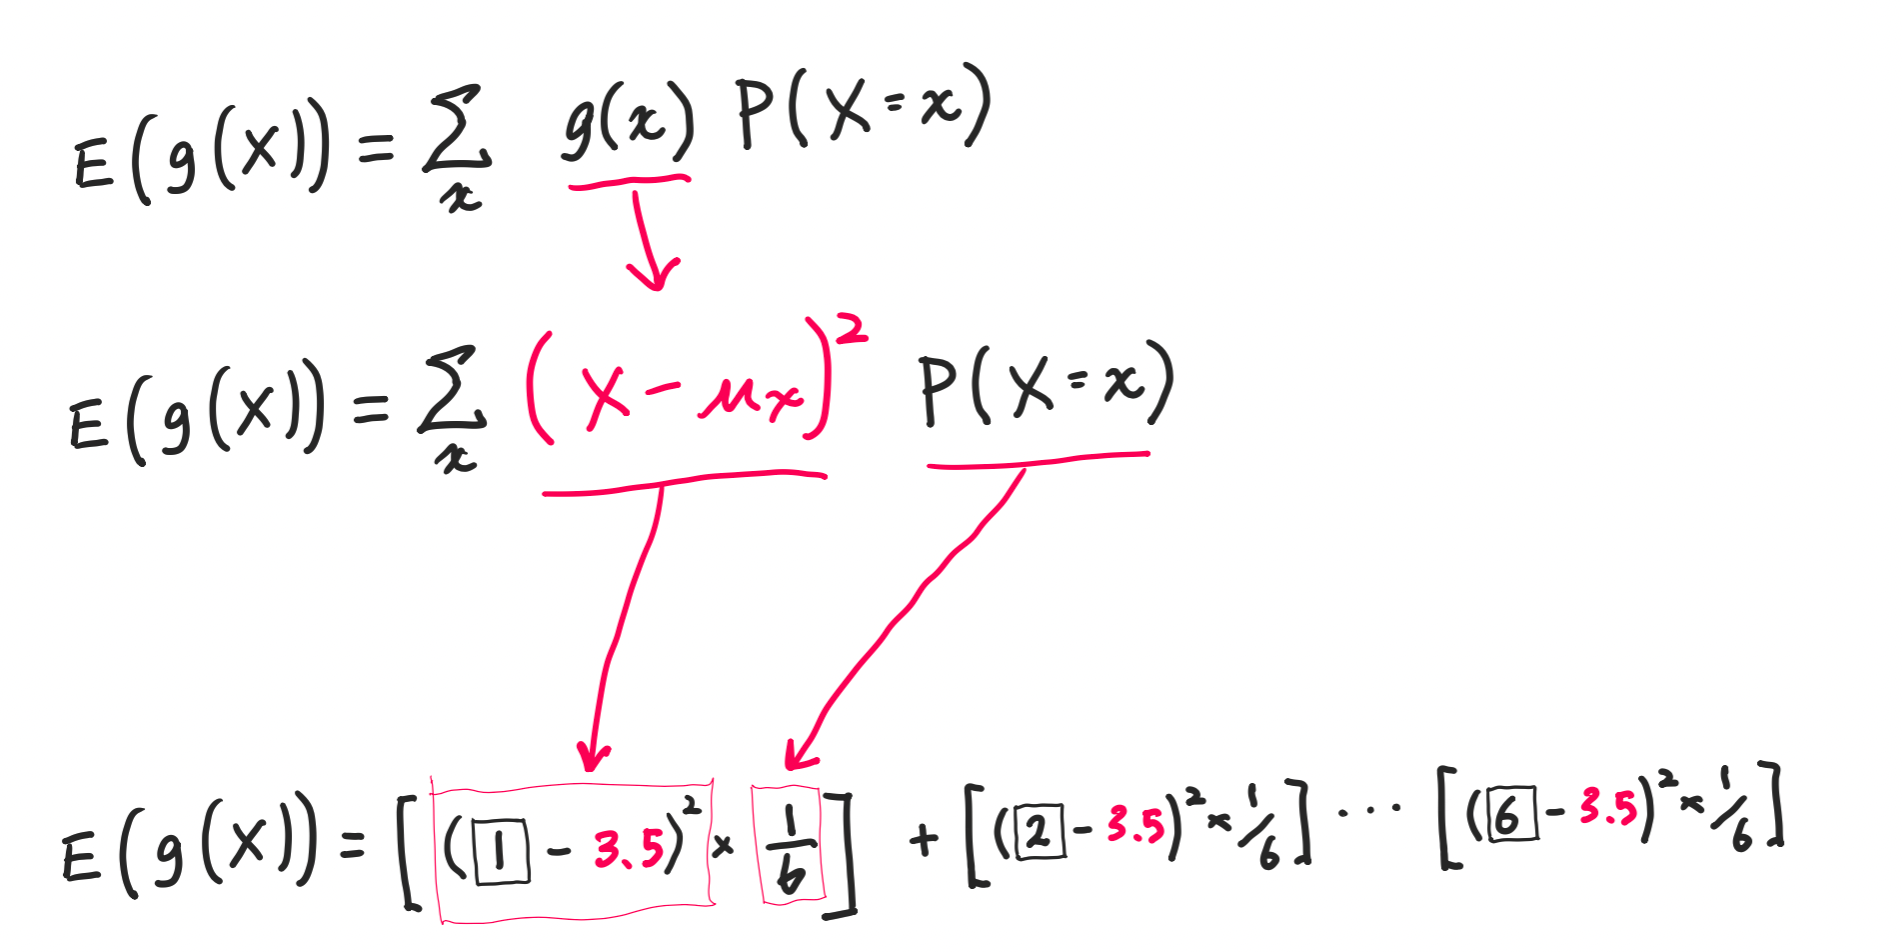 E(g(X)) = ∑ₓ g(x) P(X=x)
E(g(X)) = ∑ₓ (X - μₓ)² P(X=x)
E(g(X)) = [(1 - 3.5)² × 1/6] + [(2 - 3.5)² × 1/6] ... [(6 - 3.5)² × 1/6]